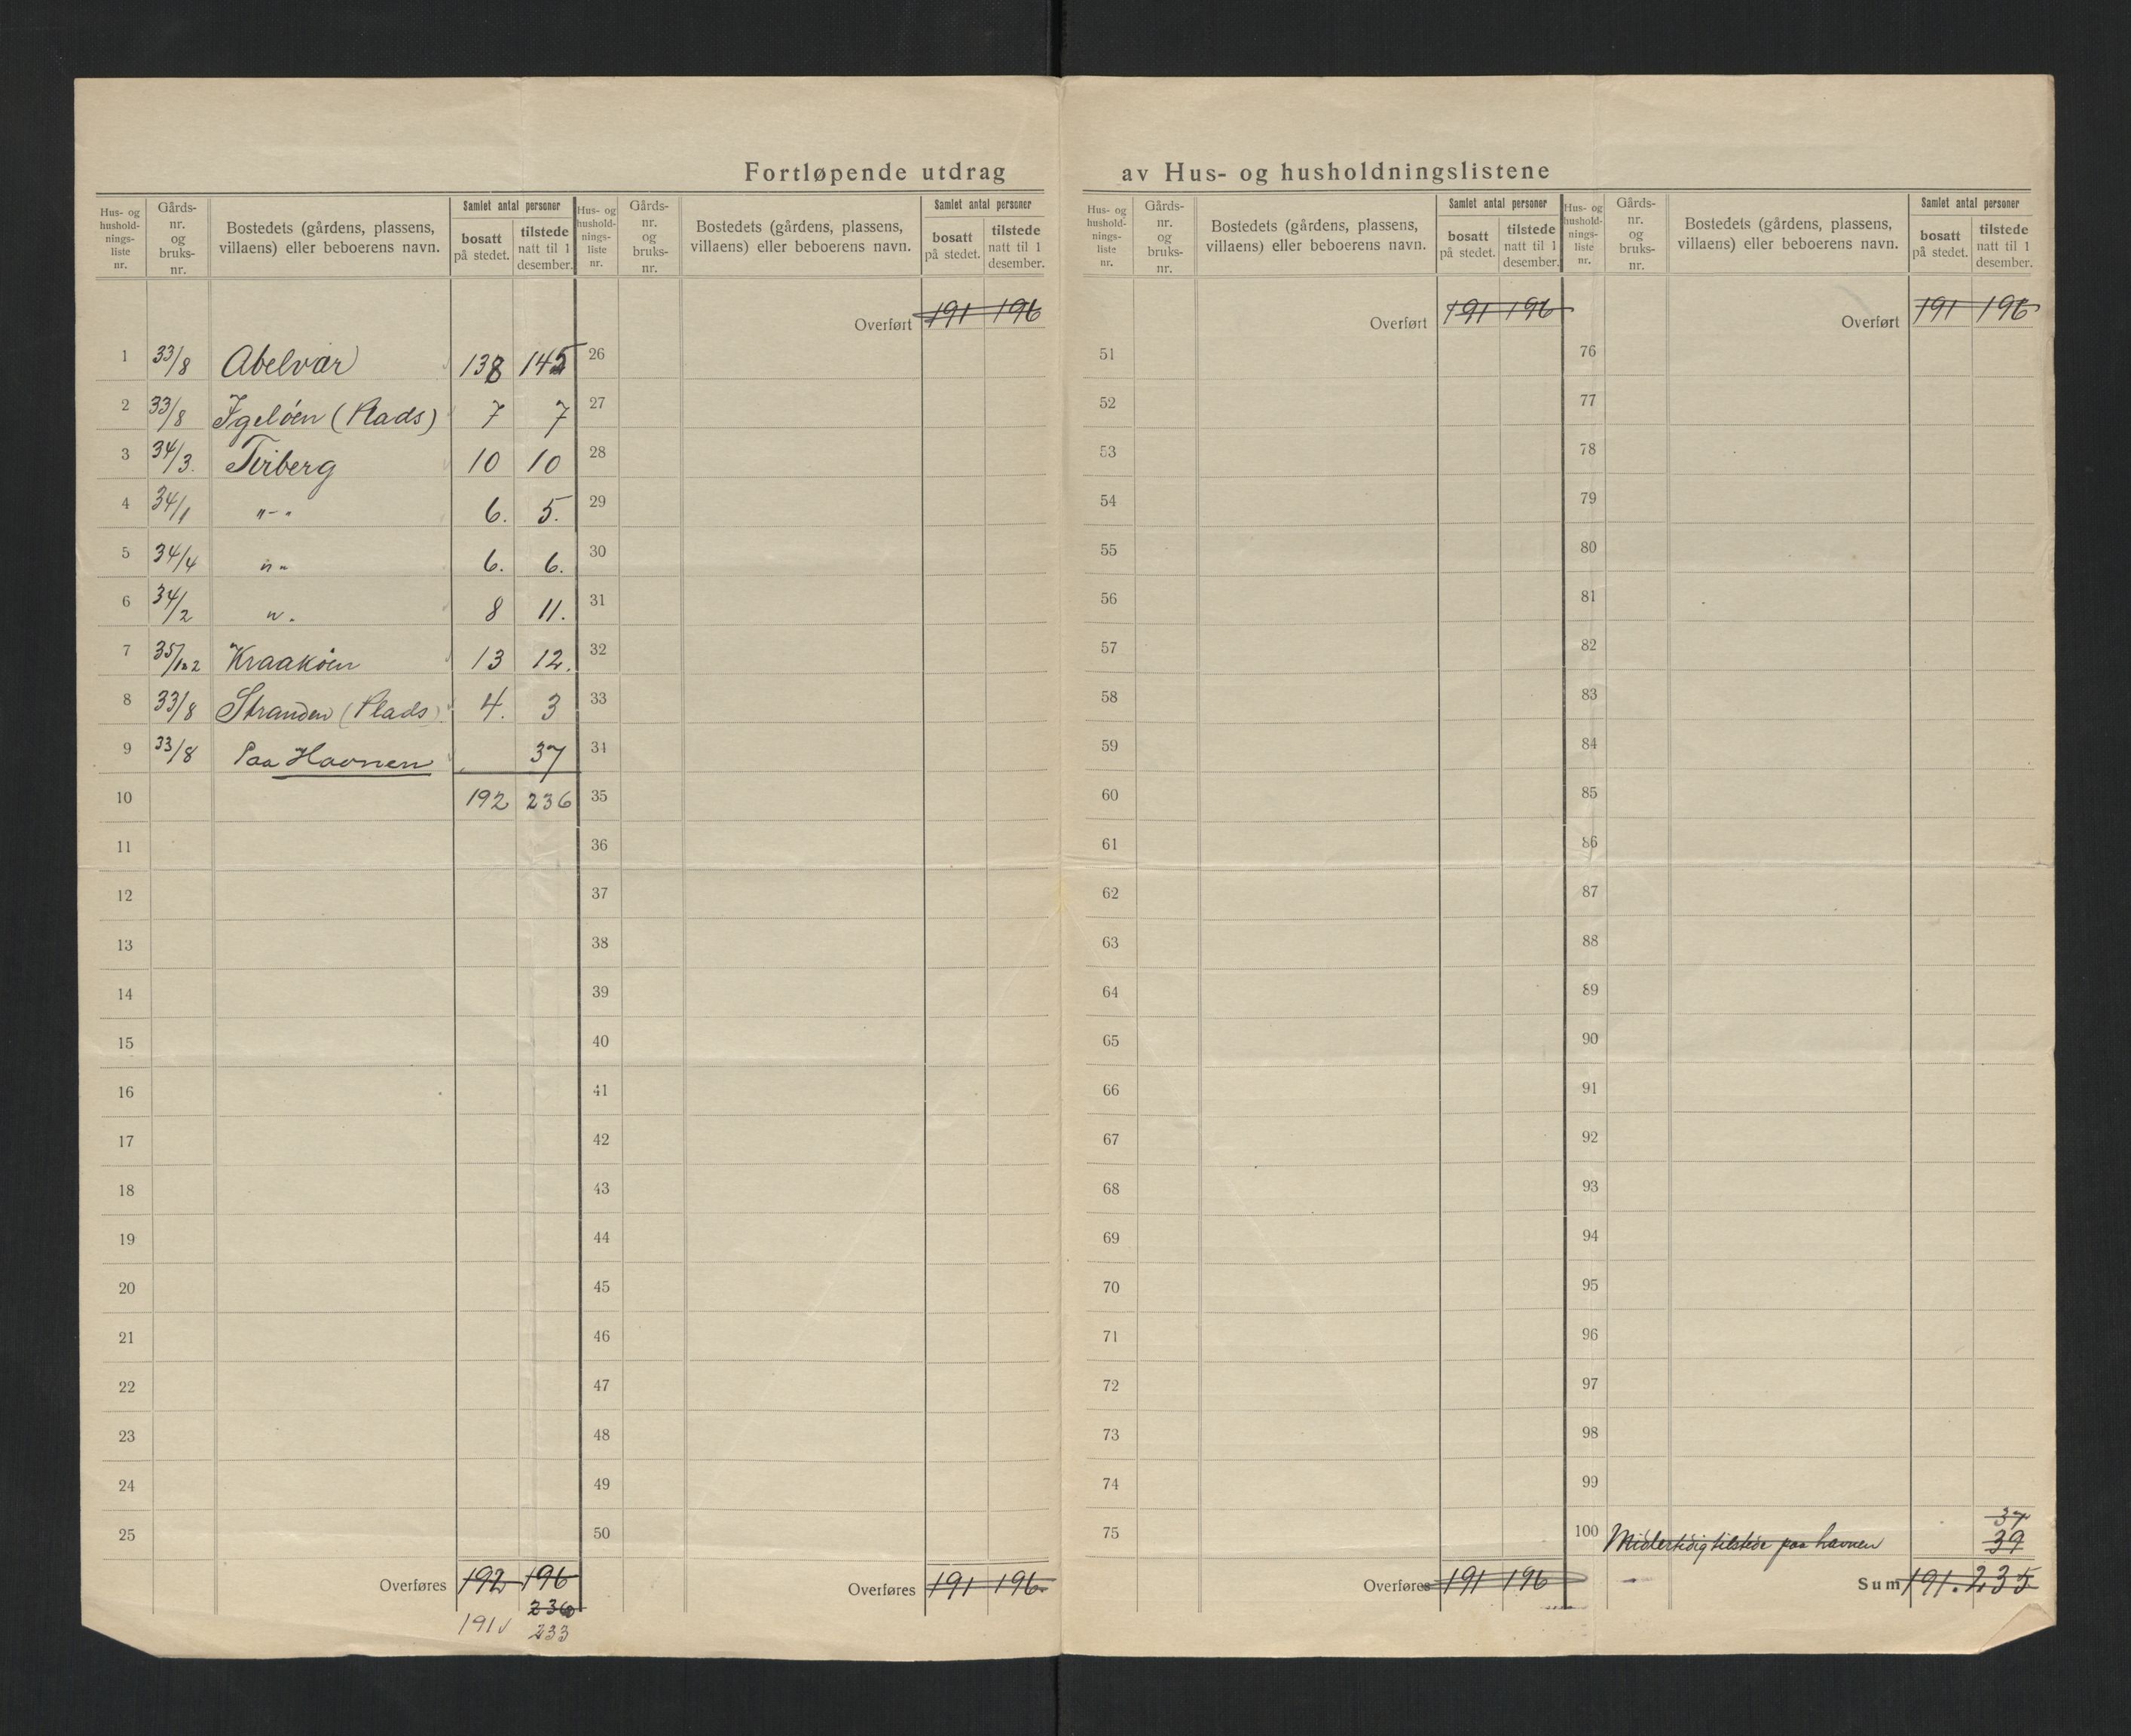 Fortløpende utdrag av Hus- og husholdningslistene
Hus- og hushold- nings- liste nr. | Gårds- nr. og bruks- nr. | Bostedets (gårdens, plassens, villaens) eller beboerens navn. | Samlet antal personer | bosatt på stedet. | tilstede natt til 1 desember.
1 33/8 Abelvær 138 145
2 33/8 Igeløen (Plads) 7 7
3 34/3. Tirberg 10 10
4 34/1 "-" 6. 5.
5 34/4 "-" 6. 6.
6 34/2 "-" 8 11.
7 35/1 2 Kraakøen 13 12.
8 33/8 Stranden (Plads) 4. 3
9 33/8 Paa Havnen 37
10 192 236
11
12
13
14
15
16
17
18
19
20
21
22
23
24
25
Overføres 192 196
236
191 233
Hus- og hushold- nings- liste nr. | Gårds- nr. og bruks- nr. | Bostedets (gårdens, plassens, villaens) eller beboerens navn. | Samlet antal personer | bosatt på stedet. | tilstede natt til 1 desember.
Overført 191 196
26
27
28
29
30
31
32
33
34
35
36
37
38
39
40
41
42
43
44
45
46
47
48
49
50
Overføres 191 196
Hus- og hushold- nings- liste nr. | Gårds- nr. og bruks- nr. | Bostedets (gårdens, plassens, villaens) eller beboerens navn. | Samlet antal personer | bosatt på stedet. | tilstede natt til 1 desember.
Overført 191 196
51
52
53
54
55
56
57
58
59
60
61
62
63
64
65
66
67
68
69
70
71
72
73
74
75
Overføres 191 196
Hus- og hushold- nings- liste nr. | Gårds- nr. og bruks- nr. | Bostedets (gårdens, plassens, villaens) eller beboerens navn. | Samlet antal personer | bosatt på stedet. | tilstede natt til 1 desember.
Overført 191 196
76
77
78
79
80
81
82
83
84
85
86
87
88
89
90
91
92
93
94
95
96
97
98
99
37
100 Midlertidig tilstede paa havnen 39
Sum 191. 235